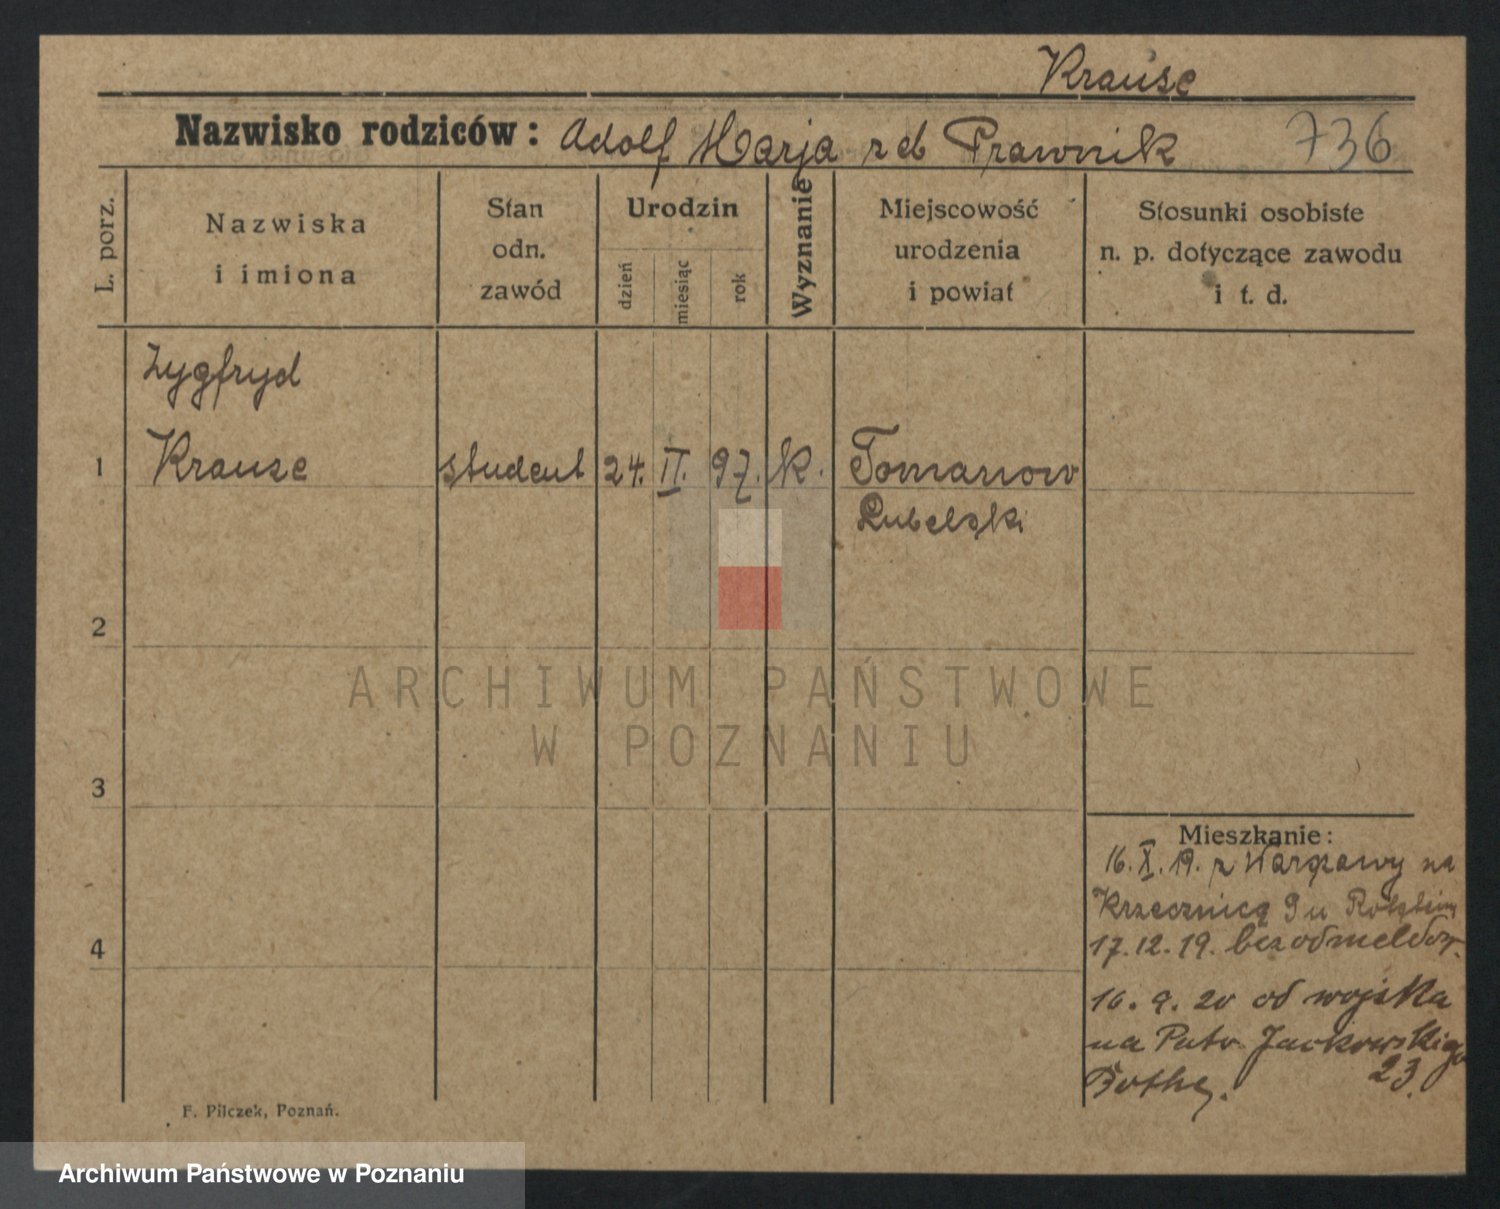 Krause
Nazwisko rodziców: Adolf Marja z d Prawnik 736
L. porz.
Nazwiska i imiona
Stan odn. zawód
Urodzin
dzień
miesiąc
rok
Wyznanie
Miejscowość urodzenia i powiat
Stosunki osobiste n. p. dotyczące zawodu i t. d.
Zygfryd
1 Krause student 24. II. 97. k. Tomanow
Lubelski
2
3
4
Mieszkanie:
16. X. 19. z Warszawy na
9 u
17.12.19. bez odmeldow.
16. 9. 20 od wojska
na Patr. Jackowskiego
23.
Bothe.
F. Pilczek, Poznań.
ARCHIWUM PAŃSTWOWE
W POZNANIU
Archiwum Państwowe w Poznaniu